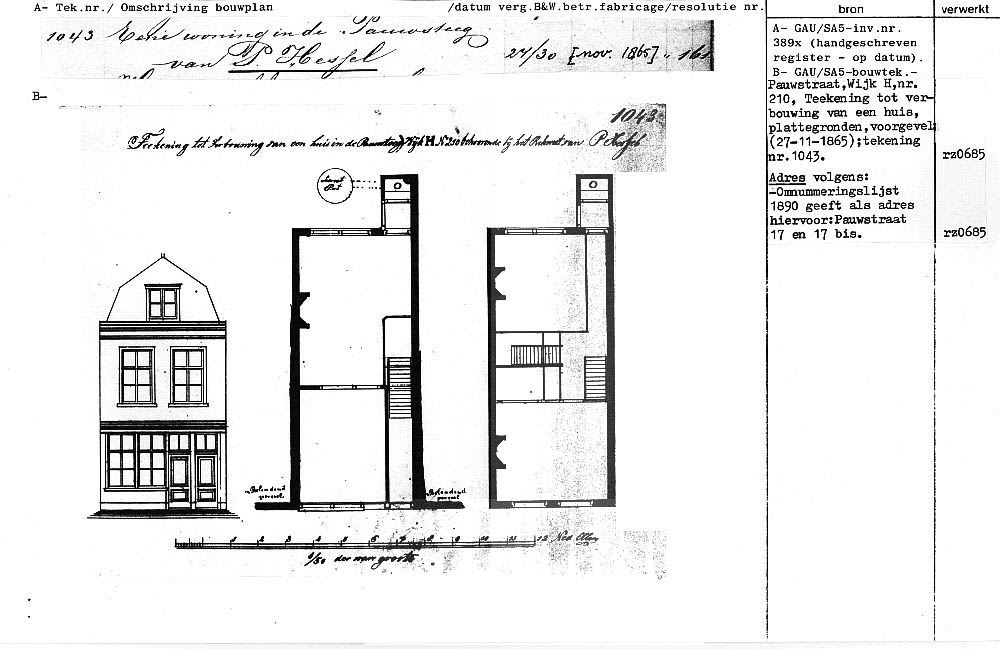 A- Tek.nr./ Omschrijving bouwplan /datum verg.B&W.betr.fabricage/resolutie nr.
bron
verwerkt
1043 woning in de Pauwsteeg
van P. Hessel
24/30 [nov. 1865]
B-
1043
Teekening tot Verbouwing van een huis in de Wijk H. N.210 behoorende bij het Rekwest van P Hessel
Belendend gevel
Belendend gevel
1 2 3 4 5 6 7 8 9 10 11 12 Ned Ellen
1/50 der ware grootte
A- GAU/SA5-inv.nr.
389x (handgeschreven
register - op datum).
B- GAU/SA5-bouwtek.-
Pauwstraat,Wijk H,nr.
210, Teekening tot ver-
bouwing van een huis,
plattegronden,voorgevel
(27-11-1865);tekening
nr.1043.
rz0685
Adres volgens:
-Omnummeringslijst
1890 geeft als adres
hiervoor:Pauwstraat
17 en 17 bis.
rz0685